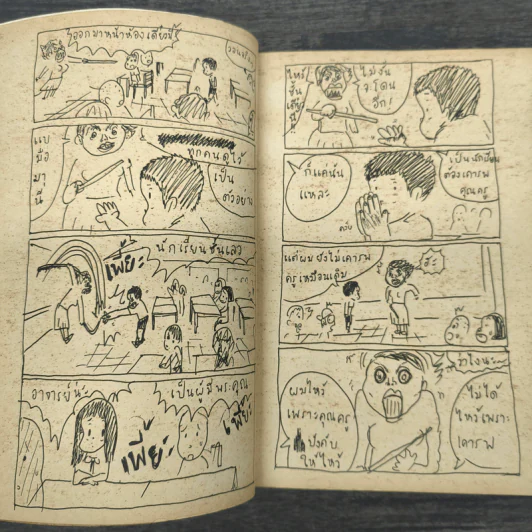 ออกมาหน้าห้องเดี๋ยวนี้
แบ
มือ
มา
นี่
ทุกคนดูไว้
เป็น
ตัวอย่าง
นักเรียนชั้นเลว
เพี้ยะ
อาจารย์น่ะ
เป็นผู้มีพระคุณ
เพี้ยะ
เพี้ยะ
ไหว้
ชั้น
เดี๋ยว
นี้
ไม่งั้น
จะโดน
อีก!
ก็แค่นั้น
แหละ
เป็นนักเรียน
ต้องเคารพ
คุณครู
แต่ผมยังไม่เคารพ
ครูเหมือนเดิม
ฮะ
ว่าไงนะ
ผมไหว้
เพราะคุณครู
บังคับ
ให้ไหว้
ไม่ได้
ไหว้เพราะ
เคารพ